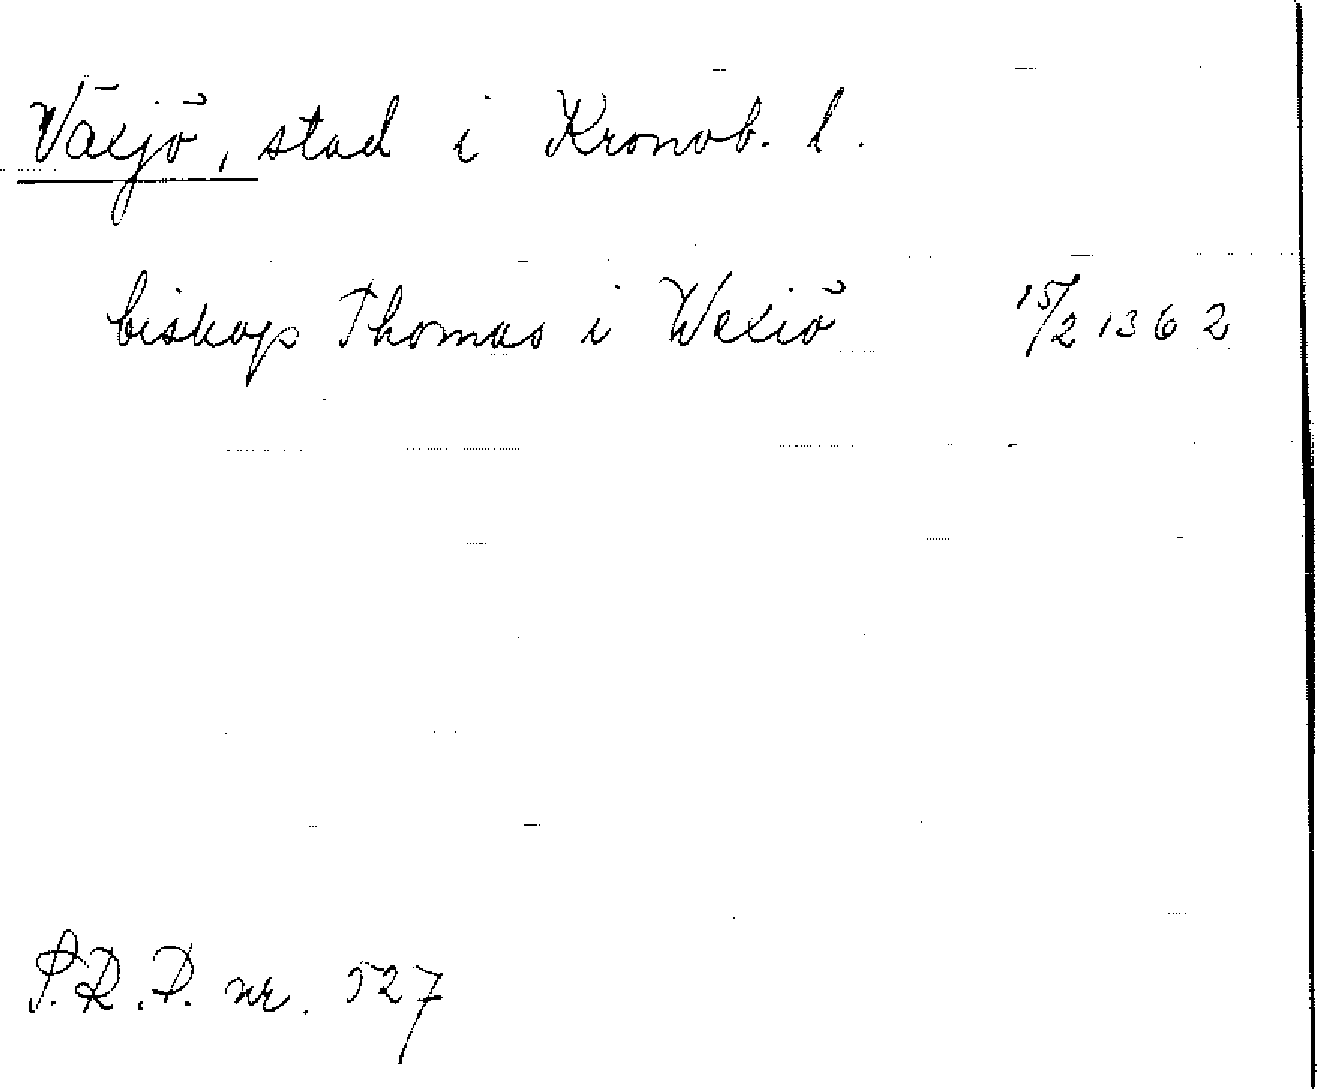 Växjö, stad i Kronob. l.
biskop Thomas i Wexiö 15/2 1362
P.R.P. nr. 527